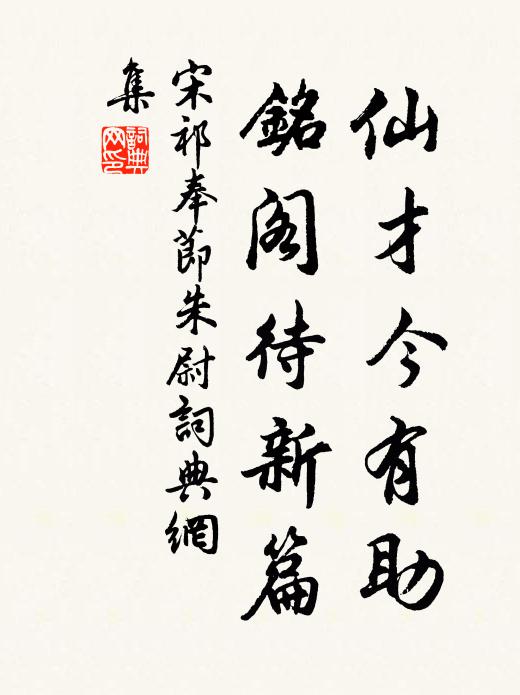 仙才今有助
銘阁待新篇
宋祁奉節朱尉詞典網
集
詞典網印